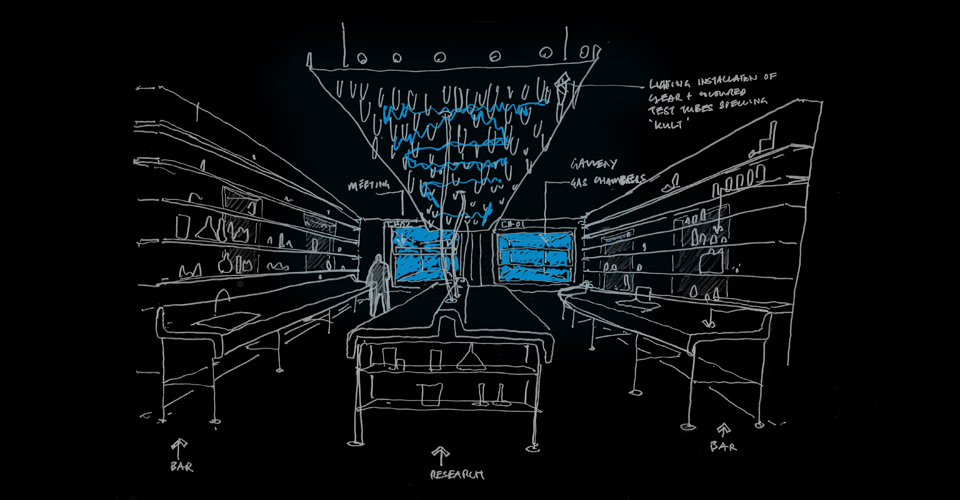 LIGHTING INSTALLATION OF
CLEAR + COLOURED
TEST TUBES SPELLING
'KULT'
GALLERY
GAS CHAMBERS
MEETING
CH-02
CH-01
BAR
RESEARCH
BAR